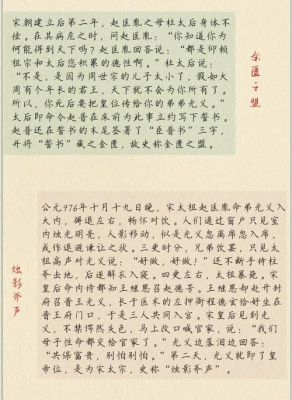 宋朝建立后第二年，赵匡胤之母杜太后身体不
佳。在其病危之时，问赵匡胤：“你知道你为
何能得到天下吗？赵匡胤回答说：“都是仰赖
祖宗和太后恁积累的德性啊。”杜太后说：
“不是，是因为周世宗的儿子太小了，假如大
周有个年长的君王，天下就不会为你所有了。
所以，你元后要把皇位传给你的弟弟光义。”
太后即命令赵普在床前为此事立约写下誓书。
赵普还在誓书的末尾签署了“臣普书”三字，
并将“誓书”藏之金匮，故史称金匮之盟。
金匮之盟
公元976年十月十九日晚，宋太祖赵匡胤命弟光义入
大内，俦退左右，畅怀对饮。人们通过窗户只见室
内烛光明亮，人影移动，似是光义忽离席忽入席，
或作退避谦让之状。三更时分，兄弟饮罢，只见太
祖高声对光义说：“好做，好做！”还不断手持柱
斧击地，后逆解衣入寝。四更左右，太祖暴薨。宋
皇后命内侍都知王继恩召赵德芳。王继恩却赴开封
府召晋王光义，长于医术的左押衙程德玄恰好坐在
晋王府门口，于是三人共同入宫。宋皇后见到光
义，不禁愕然失色，马上改口喊官家，说：“我们
母子性命都交给官家了。”光义边落泪边回答：
“共保富贵，别怕别怕。”第二天，光义就即了皇
帝位，是为宋太宗，史称“烛影斧声”。
烛影斧声